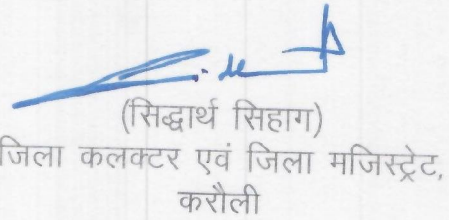 (सिद्धार्थ सिहाग)
जिला कलक्टर एवं जिला मजिस्ट्रेट,
करौली